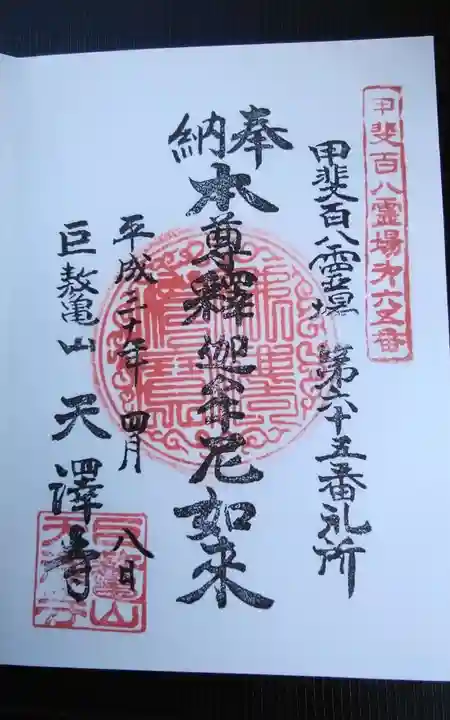 甲斐百八霊場第六五番
甲斐百八霊場 第六十五番礼所
奉納
本尊釋迦牟尼如来
平成三十年 四月 八日
巨敖亀山 天澤寺